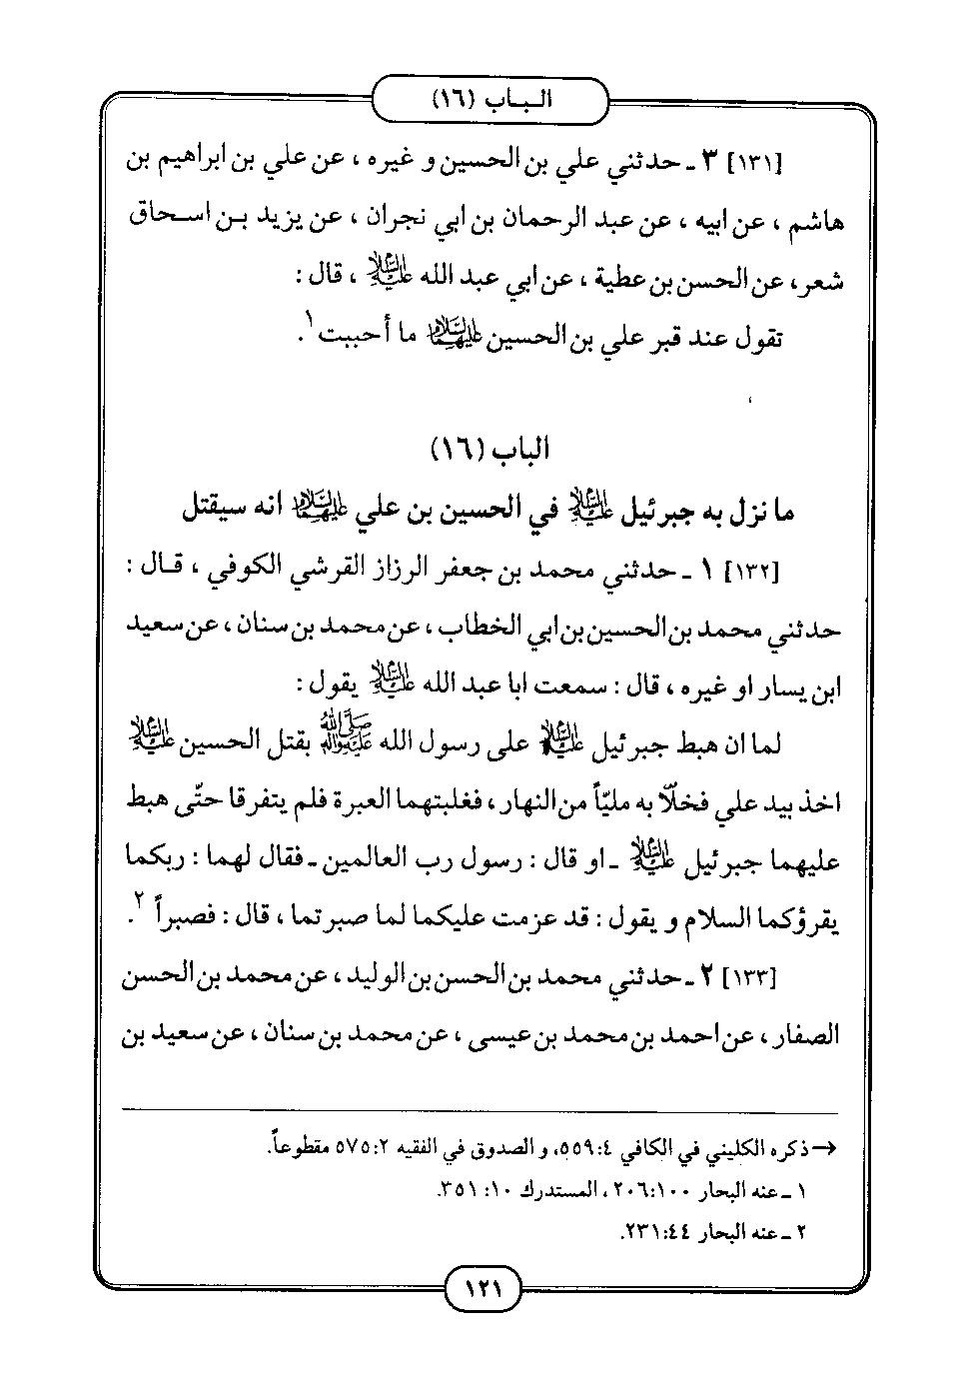 الـبـاب (١٦)
[١٣١] ٣ ـ حدثني علي بن الحسين و غيره ، عن علي بن ابراهيم بن
هاشم ، عن ابيه ، عن عبد الرحمان بن ابي نجران ، عن يزيد بـن اسـحاق
شعر، عن الحسن بن عطية ، عن ابي عبد الله عليه السلام ، قال :
تقول عند قبر علي بن الحسين عليهما السلام ما أحببت١.
الباب (١٦)
ما نزل به جبرئيل عليه السلام في الحسين بن علي عليهما السلام انه سيقتل
[١٣٢] ١ ـ حدثني محمد بن جعفر الرزاز القرشي الكوفي ، قـال :
حدثني محمد بن الحسين بن ابي الخطاب ، عن محمد بن سنان ، عن سعيد
ابن يسار او غيره ، قال : سمعت ابا عبد الله عليه السلام يقول :
لما ان هبط جبرئيل عليه السلام على رسول الله صلى الله عليه وآله بقتل الحسين عليه السلام
اخذ بيد علي فخلّا به مليّاً من النهار ، فغلبتهما العبرة فلم يتفرقا حتّى هبط
عليهما جبرئيل عليه السلام ـ او قال : رسول رب العالمين ـ فقال لهما : ربكما
يقرؤكما السلام و يقول : قد عزمت عليكما لما صبرتما ، قال : فصبراً ٢.
[١٣٣] ٢ ـ حدثني محمد بن الحسن بن الوليد ، عن محمد بن الحسن
الصفار ، عن احمد بن محمد بن عيسى ، عن محمد بن سنان ، عن سعيد بن
→ ذكره الكليني في الكافي ٤:٥٥٩، و الصدوق في الفقيه ٢:٥٧٥ مقطوعاً.
١ ـ عنه البحار ١٠٠:٢٠٦ ، المستدرك ١٠:٣٥١.
٢ ـ عنه البحار ٤٤:٢٣١.
١٢١